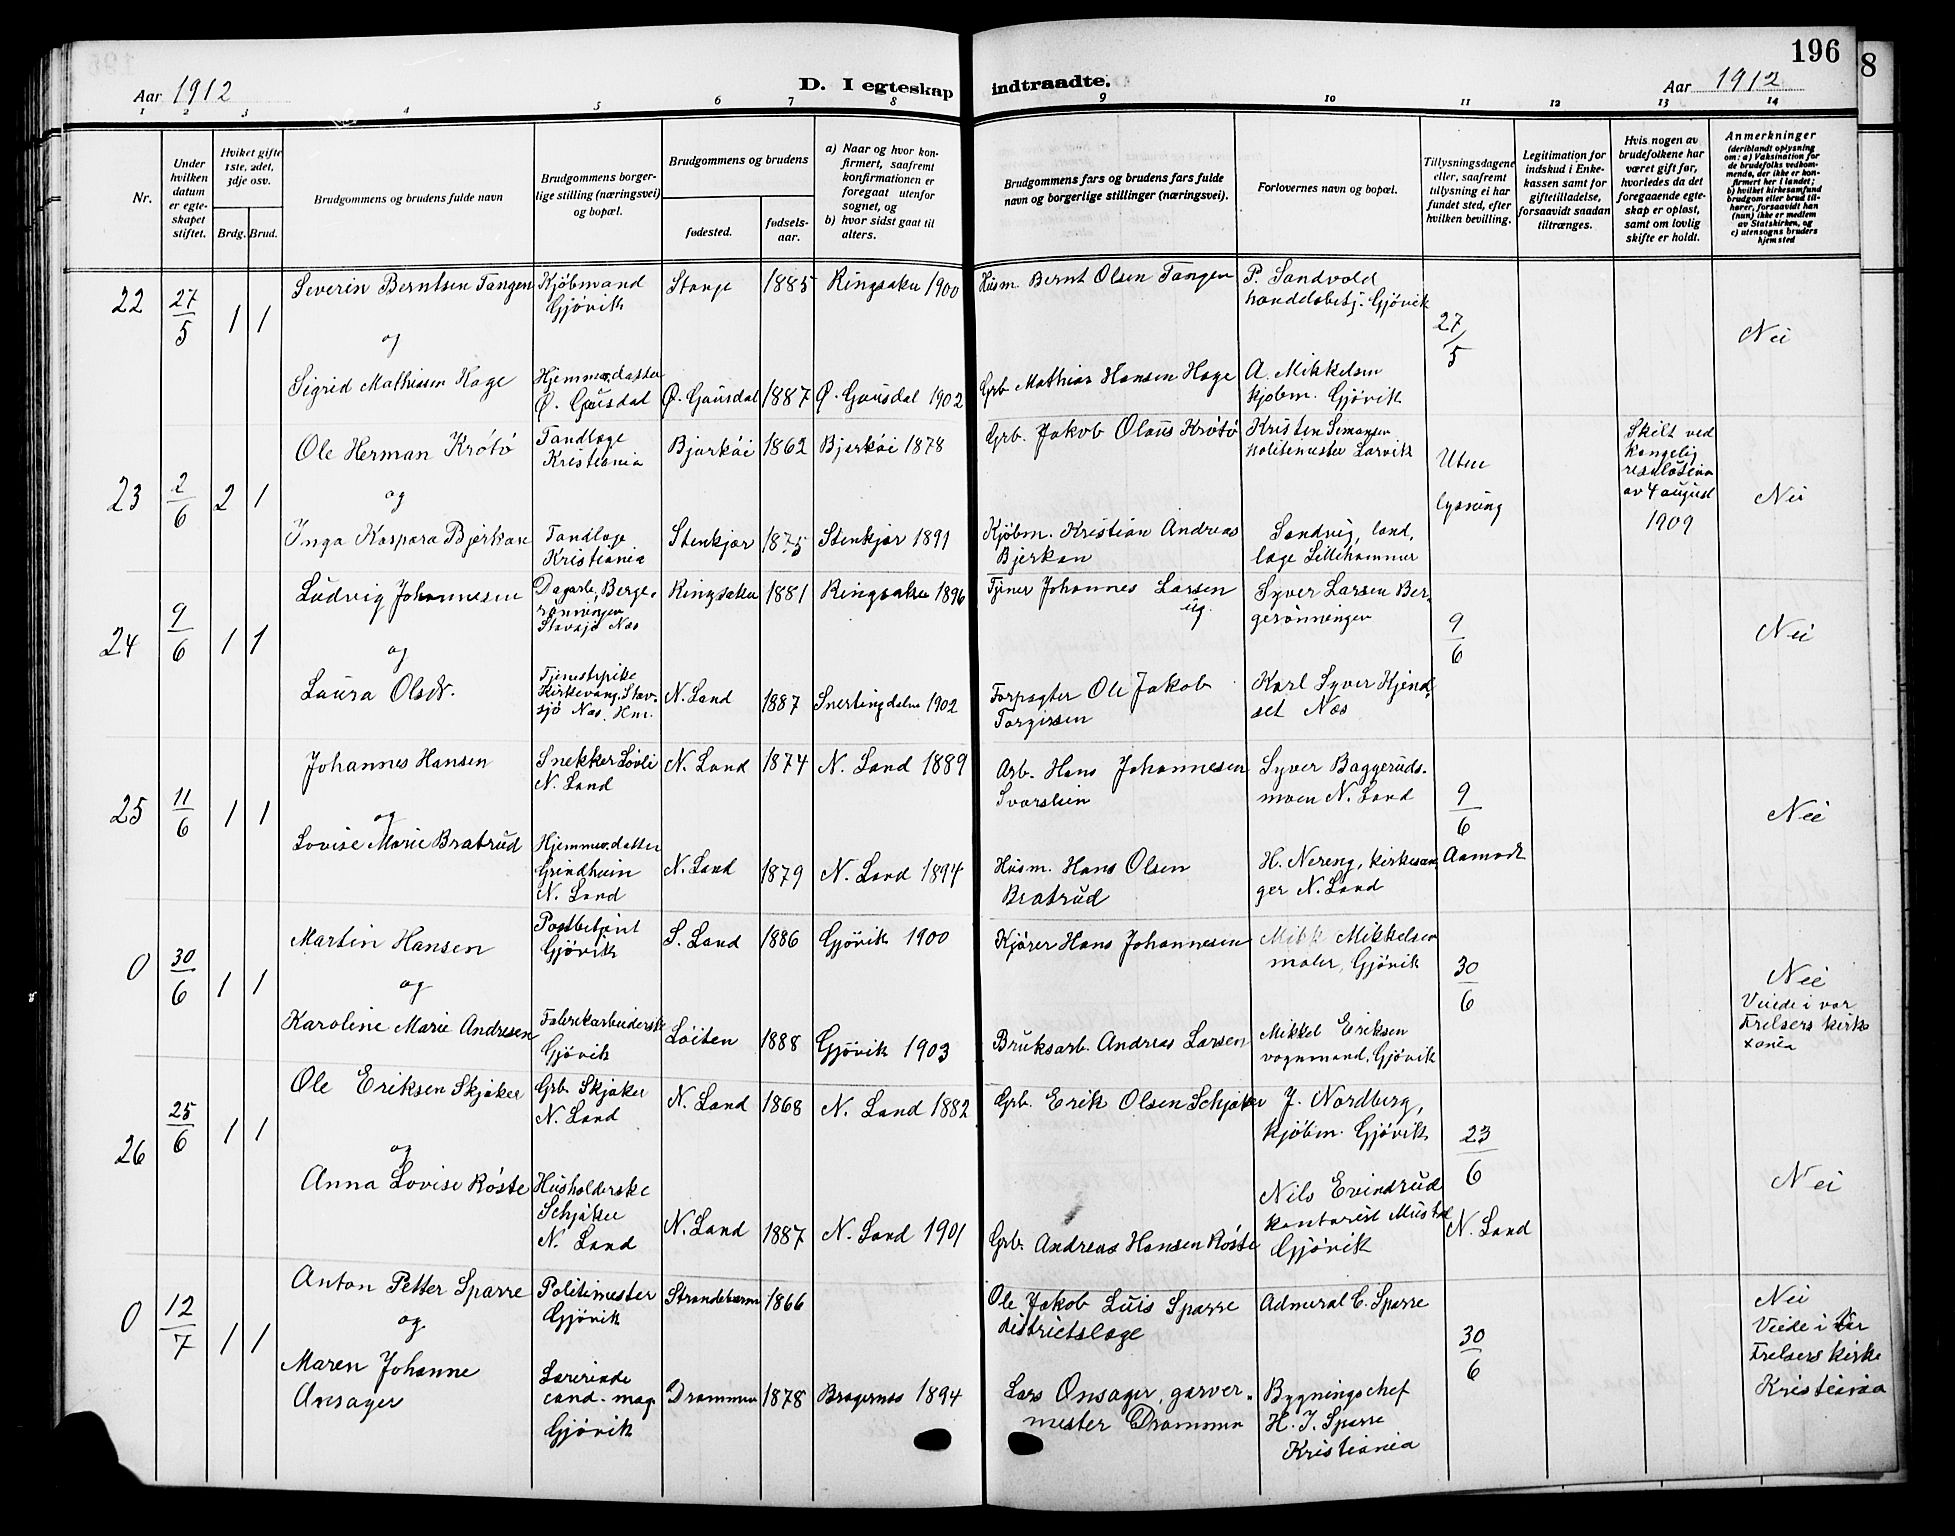 196
8
Aar 1912
D. I egteskap indtraadte.
Aar 1912
1 2 3 4 5 6 7 8 9 10 11 12 13 14
Nr.
Under hvilken datum er egteskapet stiftet.
Hviket gifte 1ste, 2det, 3dje osv.
Brdg. Brud.
Brudgommens og brudens fulde navn
Brudgommens borgerlige stilling (næringsvei) og bopæl.
Brudgommens og brudens
fødested.
fødselsaar.
a) Naar og hvor konfirmert, saafremt konfirmationen er foregaat utenfor sognet, og
b) hvor sidst gaat til alters.
Brudgommens fars og brudens fars fulde navn og borgerlige stillinger (næringsvei).
Forlovernes navn og bopæl.
Tillysningsdagene eller, saafremt tillysning ei har fundet sted, efter hvilken bevilling.
Legitimation for indskud i Enkekassen samt for giftetilladelse, forsaavidt saadan tiltrænges.
Hvis nogen av brudefolkene har været gift før, hvorledes da det foregaaende egteskap er opløst, samt om lovlig skifte er holdt.
Anmerkninger
(deriblandt oplysning om: a) Vaksination for de brudefolks vedkommende, der ikke er konfirmert her i landet; b) hvilket kirkesamfund brudgom eller brud tilhører, forsaavidt han (hun) ikke er medlem av Statskirken, og c) utensogns bruders hjemsted
22 27/5 1 1
Severin Berntsen Tangen
Kjøbmand Gjøvik
Stange 1885 Ringsaker 1900
Husm. Bernt Olsen Tangen
P. Sandvold handelsbetj. Gjøvik
27/5
Nei
og
Sigrid Mathissen Hage
Hjemmev. datter Ø. Gausdal
Ø. Gausdal 1887 Ø. Gausdal 1902
Grb. Mathias Hansen Hage
A. Mikkelsen kjøbm. Gjøvik
23 2/6 2 1
Ole Herman Krøtø
Tandlæge Kristiania
Bjarkøi 1862 Bjarkøi 1878
Grb. Jakob Olaus Krøtø
Kristen Simonsen politimester Larvik
Uten lysning
Skilt ved kongelig resolution av 4 august 1909
Nei
og
Inga Kaspara Bjerkan
Tandlæge Kristiania
Stenkjær 1875 Stenkjær 1891
Kjøbm. Kristian Andreas Bjerkan
Sandvig, tandlæge Lillehammer
24 9/6 1 1
Ludvig Johannesen
Dagarb. Bergerønningen Stavsjø Næs
Ringsaker 1881 Ringsaker 1896
Tjener Johannes Larsen ug.
Syver Larsen Bergerønningen
9/6
Nei
og
Laura Olsdr.
Tjenestepike Kirkevang, Stavsjø Næs Hm.
N. Land 1887 Snertingdalen 1902
Forpagter Ole Jakob Torgersen
Karl Syver Hjendset Næs
25 11/6 1 1
Johannes Hansen
Snekker Løvli N. Land
N. Land 1874 N. Land 1889
Arb. Hans Johannesen Svarstein
Syver Baggerudsmoen N. Land
9/6 Aamodt
Nei
og
Lovise Marie Bratrud
Hjemmev. datter Grindheim N. Land
N. Land 1879 N. Land 1894
Husm. Hans Olsen Bratrud
H. Nereng, kirkesanger N. Land
0 30/6 1 1
Martin Hansen
Postbetjent Gjøvik
S. Land 1886 Gjøvik 1900
Kjører Hans Johannesen
Mikk Mikkelsen maler, Gjøvik
30/6
Nei
Viede i vor Frelsers kirke Xania
og
Karoline Marie Andresen
Fabrikarbeiderske Gjøvik
Løiten 1888 Gjøvik 1903
Bruksarb. Andreas Larsen
Mikkel Eriksen vognmand, Gjøvik
26 25/6 1 1
Ole Eriksen Skjaker
Grb. Skjaker N. Land
N. Land 1868 N. Land 1882
Grb. Erik Olsen Schjaker
J. Nordberg, kjøbm. Gjøvik
23/6 N. Land
Nei
og
Anna Lovise Røste
Husholderske Schjaker N. Land
N. Land 1887 N. Land 1901
Grb. Andreas Hansen Røste
Nils Evindrud kontorist Mustad Gjøvik
0 12/7 1 1
Anton Petter Sparre
Politimester Gjøvik
Strandebarm 1866
Ole Jakob Luis Sparre distriktslæge
Admiral C. Sparre
30/6
Nei
Viede i Vor Frelsers kirke Kristiania
og
Maren Johanne Onsager
Lærerinde cand. mag. Gjøvik
Drammen 1878 Bragernes 1894
Lars Onsager, garvermester Drammen
Bygningschef H. J. Sparre Kristiania